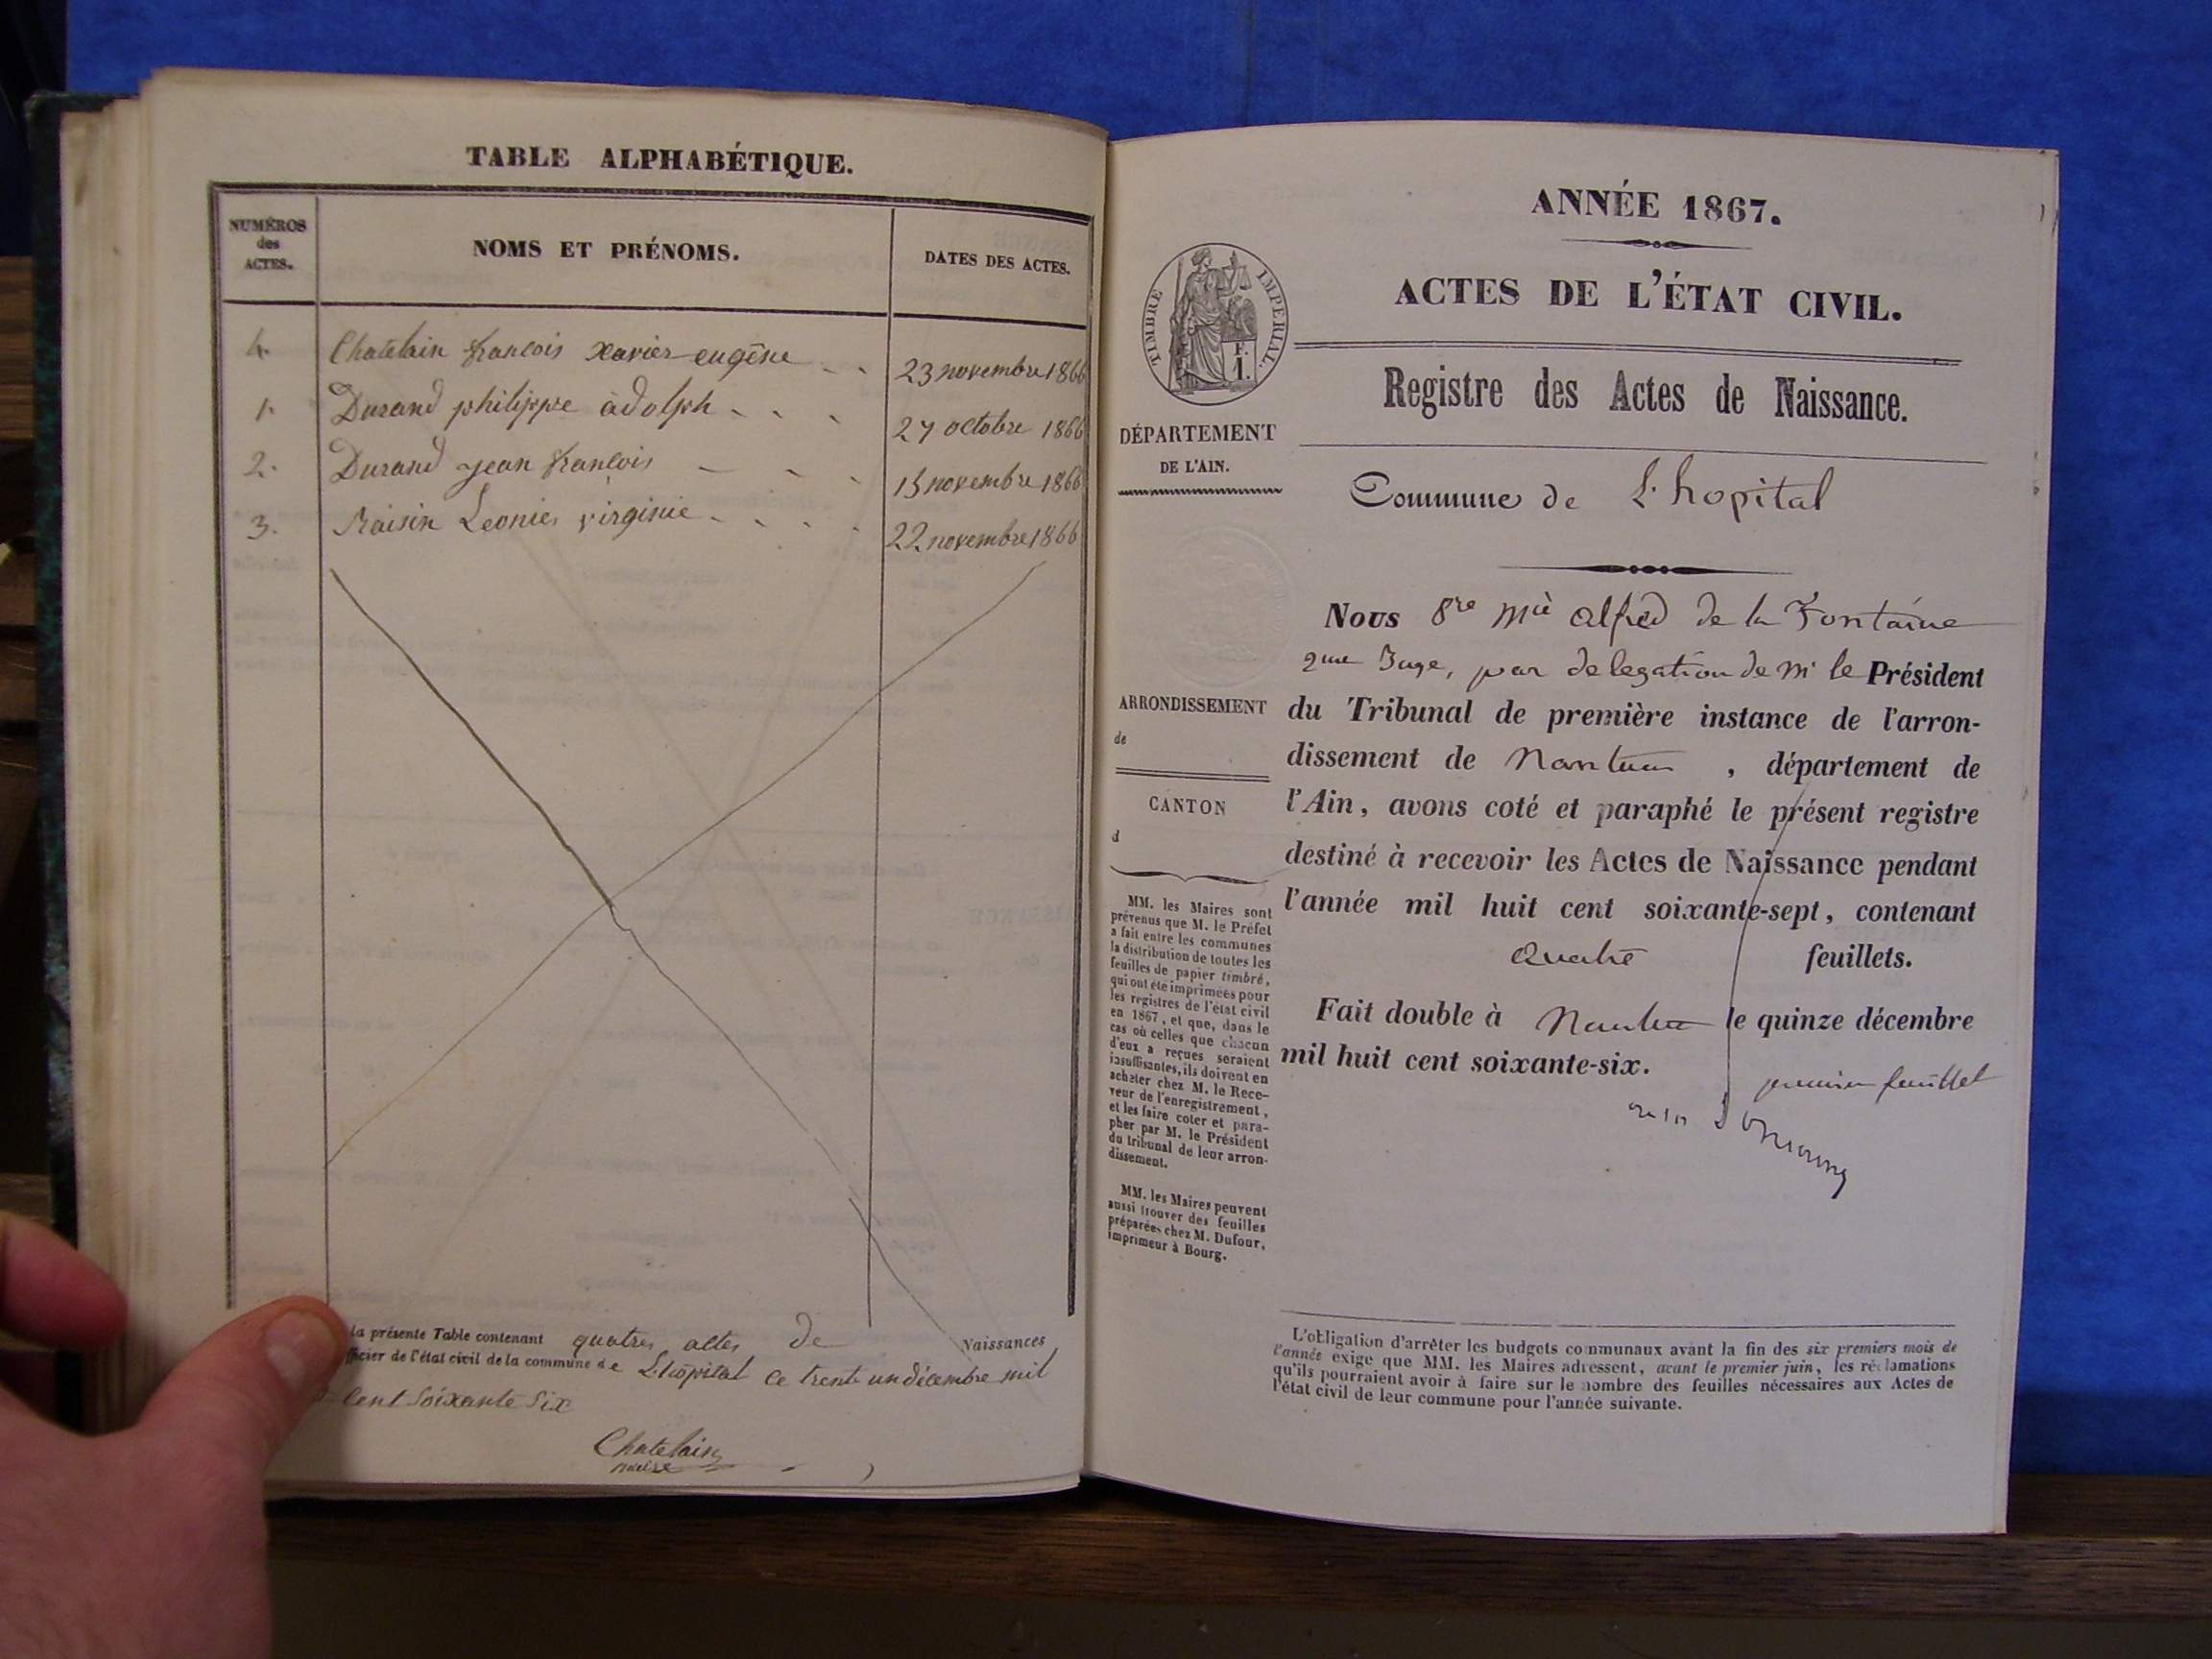 TABLE ALPHABÉTIQUE.
NUMÉROS
des
ACTES.
NOMS ET PRÉNOMS.
DATES DES ACTES.
4. Chatelain françois xavier eugène 23 novembre 1866
1. Durand philippe àdolph 27 octobre 1866
2. Durand jean françois 15 novembre 1866
3. Raisin Leonie virginie 22 novembre 1866
la présente Table contenant quatres actes de Naissances
fficier de l'état civil de la commune de L'hôpital ce trente un décembre mil
cent Soixante Six
Chatelain
maire
ANNÉE 1867.
ACTES DE L'ÉTAT CIVIL.
TIMBRE IMPÉRIAL.
F.
1.
Registre des Actes de Naissance.
DÉPARTEMENT
DE L'AIN.
Commune de L'hopital
Nous alfred de la Fontaine
2me Juge, par delegation de Mr le Président
du Tribunal de première instance de l'arron-
dissement de Nantua , département de
l'Ain, avons coté et paraphé le présent registre
destiné à recevoir les Actes de Naissance pendant
l'année mil huit cent soixante-sept, contenant
quatre feuillets.
Fait double à Nantua le quinze décembre
mil huit cent soixante-six.
premier feuillet
ARRONDISSEMENT
de
CANTON
d
MM. les Maires sont
prévenus que M. le Préfet
a fait entre les communes
la distribution de toutes les
feuilles de papier timbré,
qui ont été imprimées pour
les registres de l'état civil
en 1867, et que, dans le
cas où celles que chacun
d'eux a reçues seraient
insuffisantes, ils doivent en
acheter chez M. le Rece-
veur de l'enregistrement,
et les faire coter et para-
pher par M. le Président
du tribunal de leur arron-
dissement.
MM. les Maires peuvent
aussi trouver des feuilles
préparées chez M. Dufour,
imprimeur à Bourg.
L'obligation d'arrêter les budgets communaux avant la fin des six premiers mois de
l'année exige que MM. les Maires adressent, avant le premier juin, les réclamations
qu'ils pourraient avoir à faire sur le nombre des feuilles nécessaires aux Actes de
l'état civil de leur commune pour l'année suivante.